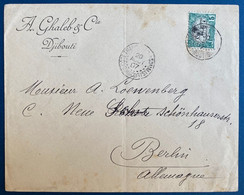 A. Ghaleb & Cie
Djibouti
Monsieur A. Loewenberg
C. Neue Schönhauserstr.
18
Berlin
Allemagne